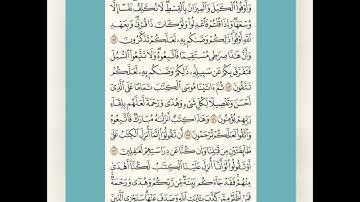 وَأَوْفُوا۟ ٱلْكَيْلَ وَٱلْمِيزَانَ بِٱلْقِسْطِ لَا نُكَلِّفُ نَفْسًا إِلَّا
وُسْعَهَا وَإِذَا قُلْتُمْ فَٱعْدِلُوا۟ وَلَوْ كَانَ ذَا قُرْبَىٰ وَبِعَهْدِ
ٱللَّهِ أَوْفُوا۟ ذَٰلِكُمْ وَصَّىٰكُم بِهِۦ لَعَلَّكُمْ تَذَكَّرُونَ
وَأَنَّ هَٰذَا صِرَٰطِى مُسْتَقِيمًا فَٱتَّبِعُوهُ وَلَا تَتَّبِعُوا۟ ٱلسُّبُلَ
فَتَفَرَّقَ بِكُمْ عَن سَبِيلِهِۦ ذَٰلِكُمْ وَصَّىٰكُم بِهِۦ لَعَلَّكُمْ
تَتَّقُونَ ثُمَّ ءَاتَيْنَا مُوسَى ٱلْكِتَٰبَ تَمَامًا عَلَى ٱلَّذِىٓ
أَحْسَنَ وَتَفْصِيلًا لِّكُلِّ شَىْءٍ وَهُدًى وَرَحْمَةً لَّعَلَّهُم بِلِقَآءِ
رَبِّهِمْ يُؤْمِنُونَ وَهَٰذَا كِتَٰبٌ أَنزَلْنَٰهُ مُبَارَكٌ فَٱتَّبِعُوهُ
وَٱتَّقُوا۟ لَعَلَّكُمْ تُرْحَمُونَ أَن تَقُولُوٓا۟ إِنَّمَآ أُنزِلَ ٱلْكِتَٰبُ عَلَىٰ
طَآئِفَتَيْنِ مِن قَبْلِنَا وَإِن كُنَّا عَن دِرَاسَتِهِمْ لَغَٰفِلِينَ
أَوْ تَقُولُوا۟ لَوْ أَنَّآ أُنزِلَ عَلَيْنَا ٱلْكِتَٰبُ لَكُنَّآ أَهْدَىٰ
مِنْهُمْ فَقَدْ جَآءَكُم بَيِّنَةٌ مِّن رَّبِّكُمْ وَهُدًى وَرَحْمَةٌ
فَمَنْ أَظْلَمُ مِمَّن كَذَّبَ بِـَٔايَٰتِ ٱللَّهِ وَصَدَفَ عَنْهَا سَنَجْزِى ٱلَّذِينَ